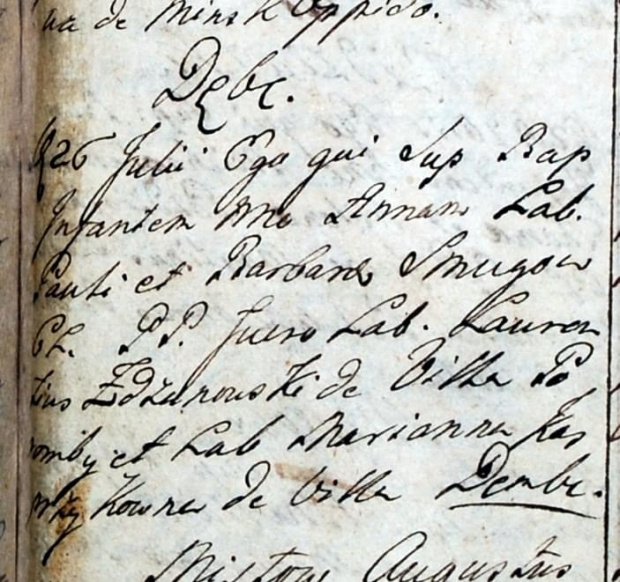 na de Minsk Oppido.
Dębe.
26 Julii Ego qui Sup Bap
Infantem nne Annam Lab.
Pauli et Barbara Smugow
CL. PP. fuere Lab. Lauren
tius Zdzanowski de Villa Po
romby et Lab Marianna Kas
de Villa Dembe.
Mistow Augustus